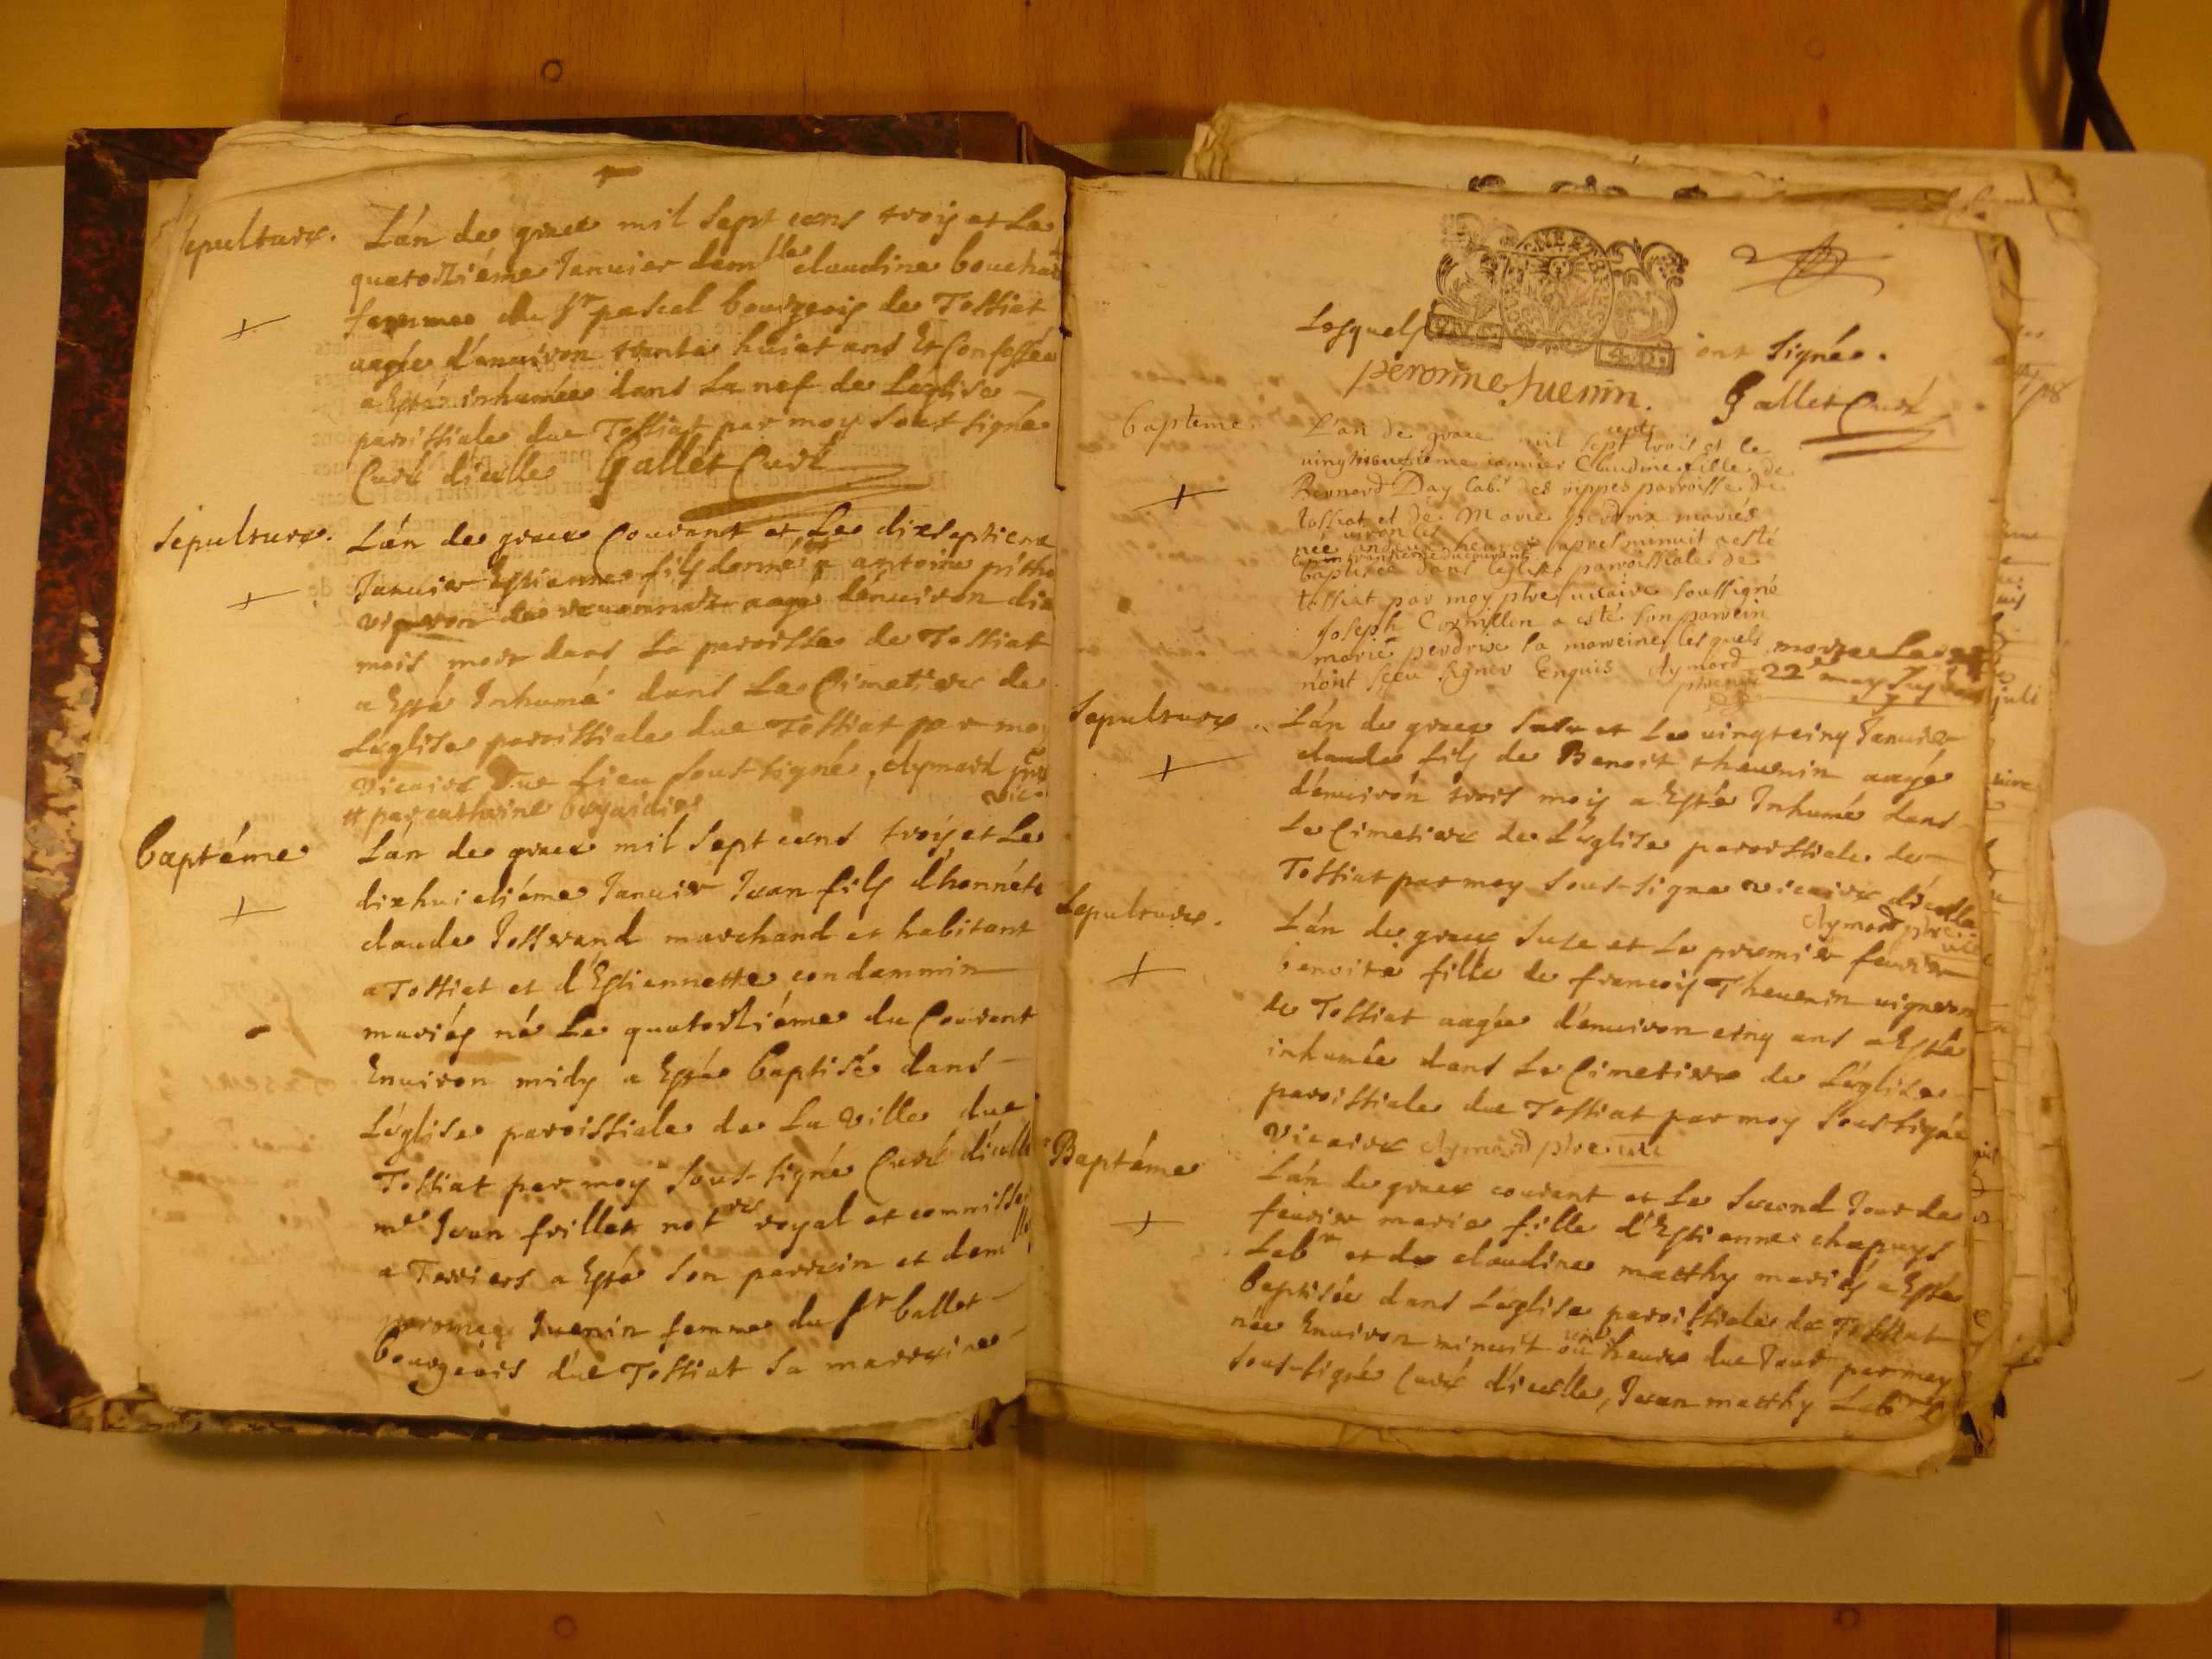 Sepulture.
L'án de grace mil sept cens trois et Le
quatorziéme Januier dem^lle claudine bouchar
femme du s^r pascal bourgeois de Tossiat
aagée d'enuiron trente huict ans Et Confessée
a Esté inhumée dans La nef de L'église
paroissiale due Tossiat par moy sous-signé
Curé d'icelle Gallet Curé
Sépulture.
L'án de grace Courant et Le dixseptieme
Januier Estienne fils donné # a antoine
vigneron de aagé d'enuiron dix
mois mort dans La paroisse de Tossiat
a Esté Inhumé dans Le Cimetiere de
L'église paroissiale due Tossiat par moy
Vicaire Due Lieu sous-signé, Aymard ptre
vic.
# par catherine
baptéme
L'án de grace mil sept cens trois et Le
dixhuictiéme Januier Jean fils d'honnéte
claude Josserand marchand et habitant
a Tossiat et d'Estiennette condammin
mariés né Le quatorziéme du Courant
Enuiron midy a Esté baptisé dans
L'église paroissiale de La ville due
Tossiat par moy sous-signé Curé d'icelle
m^re Jean frillet not^re royal et commissre
a Terriers a Esté son parrein et dem^lle
peronne Juenin femme du s^r ballet
bourgeois due Tossiat sa marreine
Lesquels ont signé.
peronne Juenin. Gallet Curé
baptéme.
L'an de grace mil sept cent trois et le
vingt ianuier Claudine fille de
Bernard Day lab.^r des rippes parroisse de
tossiat et de Marie perdrix mariés
née enuiron les heures apres minuit a esté
baptisée dans l'eglise parroissiale de
tossiat par moy ptre uicaire soussigné
Joseph Cornillon a esté son parrein
marie perdrix sa marreine lesquels
n'ont sceu signer Enquis Aymard
ptre vic.
morte Le
22 may
Sepulture.
L'án de grace susd et Le vingtcinq Januier
claude fils de Benoit theuenin aagé
d'enuiron trois mois a Esté Inhumé dans
Le Cimetiere de L'église paroissiale de
Tossiat par moy sous-signé vicaire d'icelle
Aymard ptre vic
Sepulture.
L'án de grace susd et Le premier feurier
benoite fille de francois Theuenin uigneron
de Tossiat aagée d'enuiron cinq ans a Esté
inhumée dans Le Cimetiere de L'église
paroissiale due Tossiat par moy soussigné
Vicaire Aymard ptre vic
Baptéme
L'án de grace courant et Le second Jour de
feurier marie fille d'Estienne chapuys
Lab^r et de claudine matthy mariés a Esté
baptisée dans L'église paroissiale de Tossiat
née Enuiron minuit ou heure due Jour par moy
sous-signé Curé d'icelle, Jean matthy Lab^r